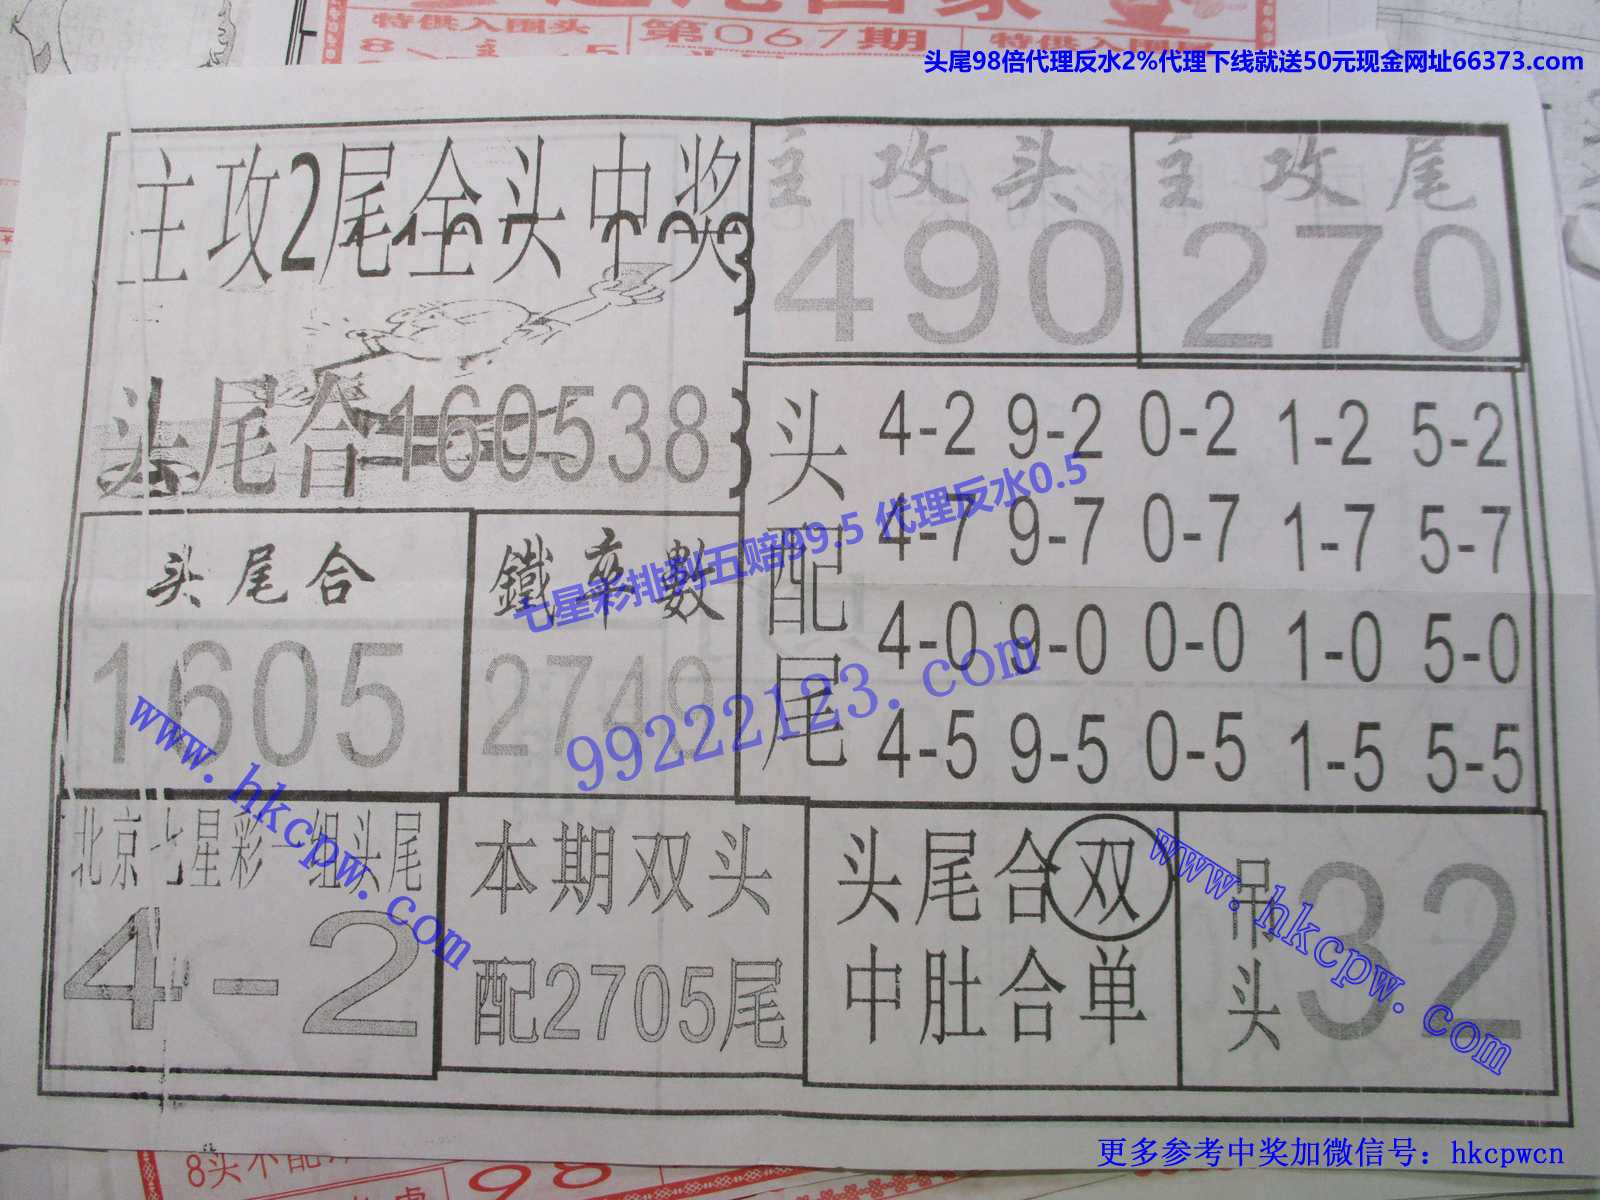 特供入围头
第067期
特供入围
头尾98倍代理反水2%代理下线就送50元现金网址66373.com
主攻2尾全头中奖
主攻头
490
主攻尾
270
头尾合160538
头配尾
4-2 9-2 0-2 1-2 5-2
4-7 9-7 0-7 1-7 5-7
4-0 9-0 0-0 1-0 5-0
4-5 9-5 0-5 1-5 5-5
七星彩排列五赔99.5 代理反水0.5
头尾合
1605
鐵率數
2749
99222123.com
www.hkcpw.com
北京七星彩一组头尾
4-2
本期双头
配2705尾
头尾合双
中肚合单
吊头
32
www.hkcpw.com
更多参考中奖加微信号：hkcpwcn
98